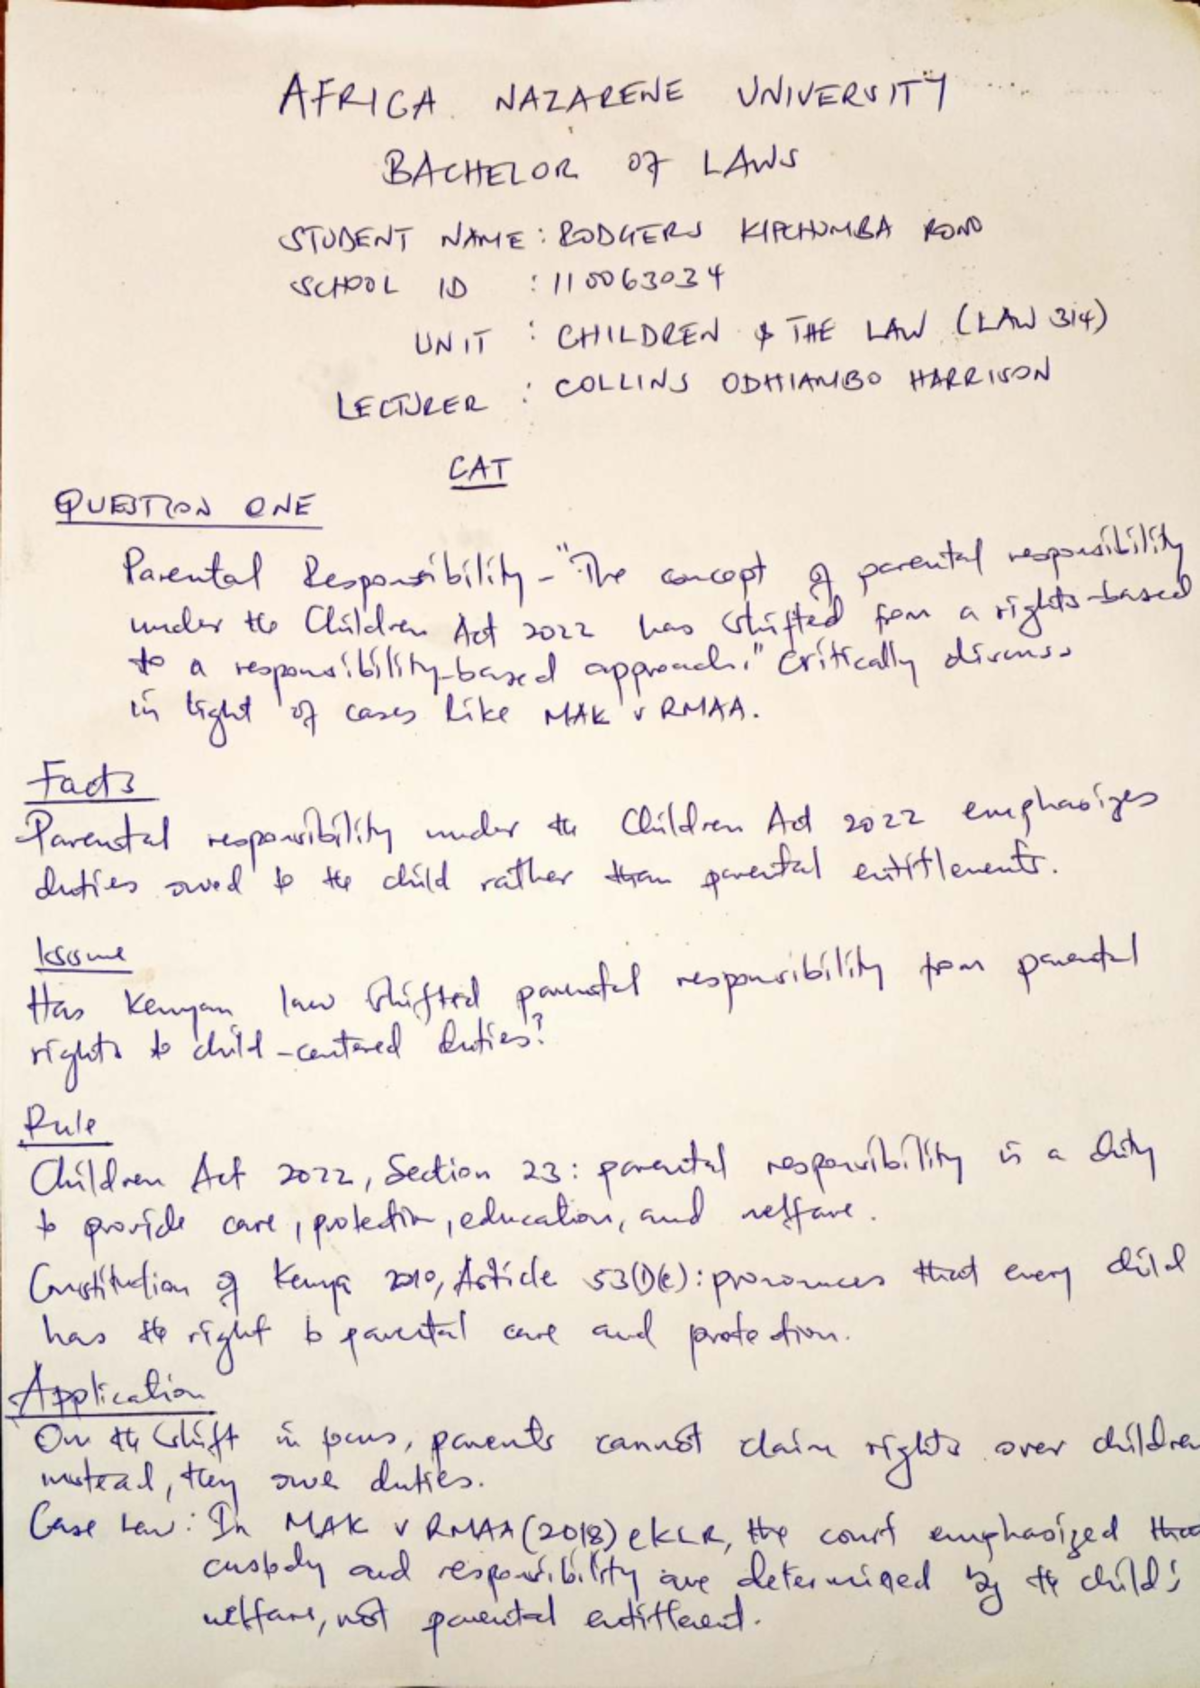 AFRICA NAZARENE UNIVERSITY
BACHELOR OF LAWS
STUDENT NAME: RODGERS KIPCHUMBA RONO
SCHOOL ID : 110063034
UNIT : CHILDREN & THE LAW (LAW 314)
LECTURER : COLLINS ODHIAMBO HARRISON
CAT
QUESTION ONE
Parental Responsibility - "The concept of parental responsibility
under the Children Act 2022 has shifted from a rights-based
to a responsibility-based approach." Critically discuss
in light of cases like MAK v RMAA.
Facts
Parental responsibility under the Children Act 2022 emphasizes
duties owed to the child rather than parental entitlements.
Issue
Has Kenyan law shifted parental responsibility from parental
rights to child-centered duties?
Rule
Children Act 2022, Section 23: parental responsibility is a duty
to provide care, protection, education, and welfare.
Constitution of Kenya 2010, Article 53(1)(e): pronounces that every child
has the right to parental care and protection.
Application
On the shift in focus, parents cannot claim rights over children
instead, they owe duties.
Case Law: In MAK v RMAA (2018) eKLR, the court emphasized that
custody and responsibility are determined by the child's
welfare, not parental entitlement.